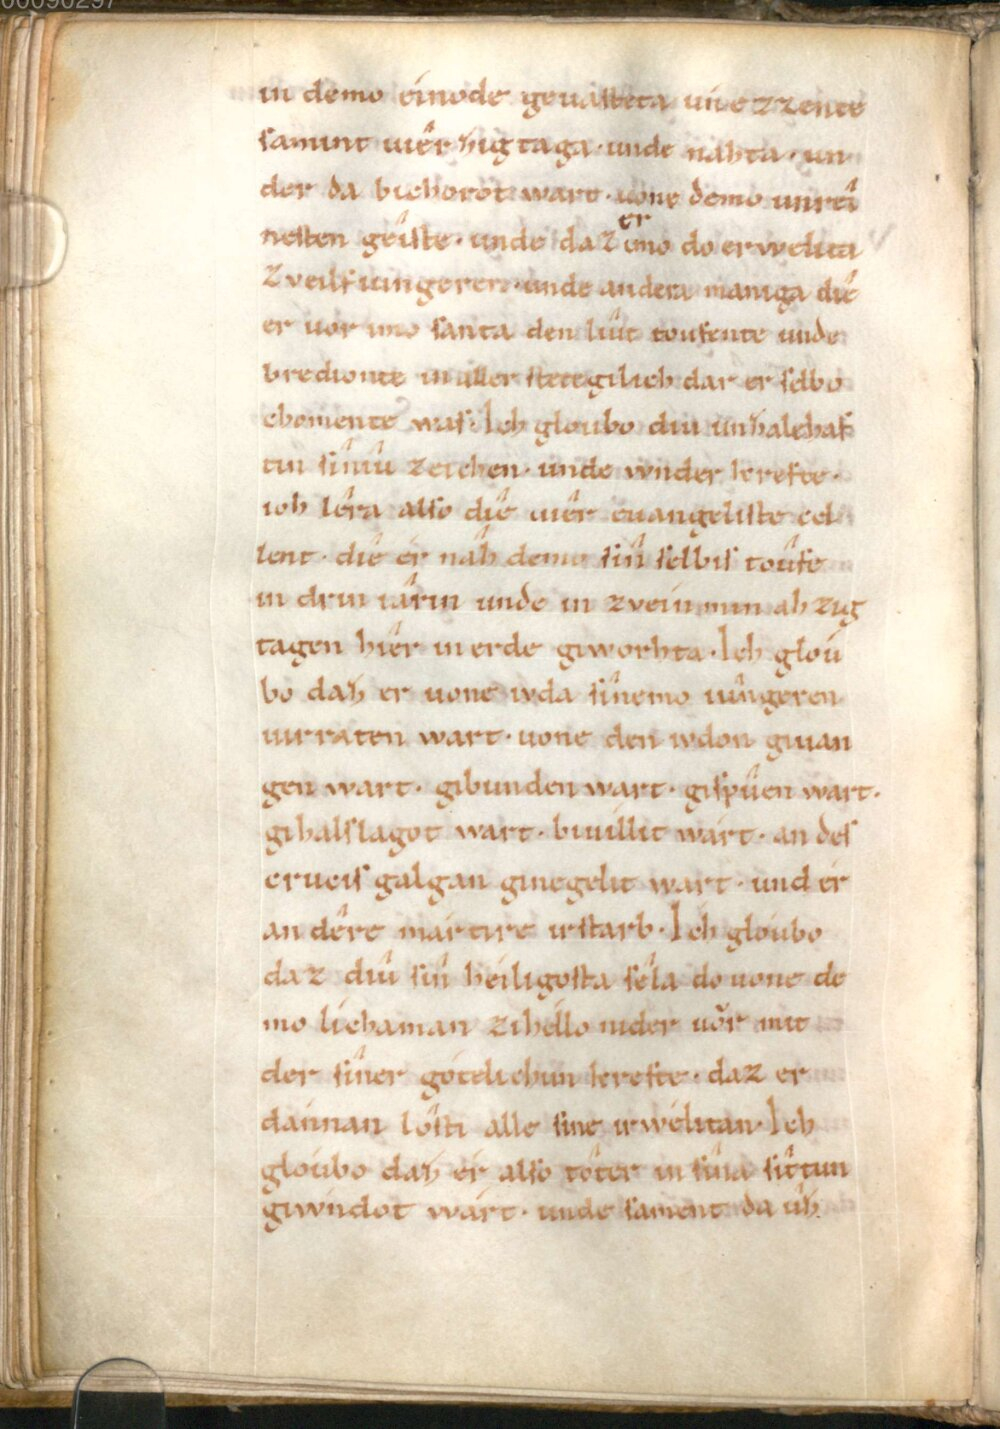 00090297
in demo éinode geuásteta uiie zzente
samint uiêr hig taga · unde náhta · un
der da bichorot wart · uone demo unréi
nesten geîste · unde daz er imo do erwelita
Zveilf iungeren · unde andera maniga diê
er uor imo santa den liût toufente unde
bredionte in aller stetegilich dar er selbo
chomente was · Ich gloubo diu unhalehaf
tin sîniû zeichen · unde wnder krefte ·
ioh lêra also diê uiêr euangeliste cel
lent · diê ér nâh demo sîn selbis toûfe
in drin iârin unde in zvein min ahzug
tagen hiêr in erde giworhta · Ich gloû
bo dah er uone ivda sînemo iûngeren
uirraten wart · uone den ivdon giuan
gen wart · gibunden wart · gispûen wart ·
gihalslagot wart · biuillit wárt · an des
crucis galgan ginegelit wart · und ér
an dêre mártire irstarb · Ich gloúbo
daz diû sîn héiligosta sêla do uone de
mo lichaman zi hello nider uôr mit
der sîner góteliehun krefte · daz er
daínnan lôsti alle sine irwéltan · Ich
gloúbo dah ér also tôter in sîna sîtun
giwndot wárt · unde sament da ûh